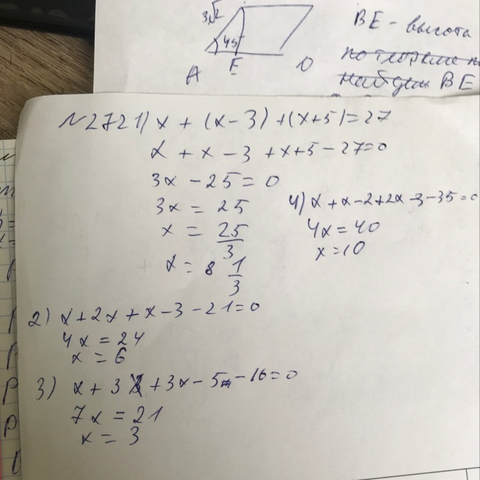 3√2
45°
A E D
BE - высота
BE
N2721) x + (x-3) + (x+5) = 27
x + x - 3 + x+5 - 27=0
3x - 25 = 0
3x = 25
x = 25/3
x = 8 1/3
4) x + x-2+2x-3-35=0
4x = 40
x = 10
2) x+2x+x-3-21=0
4x = 24
x = 6
3) x + 3x + 3x - 5 - 16=0
7x = 21
x = 3